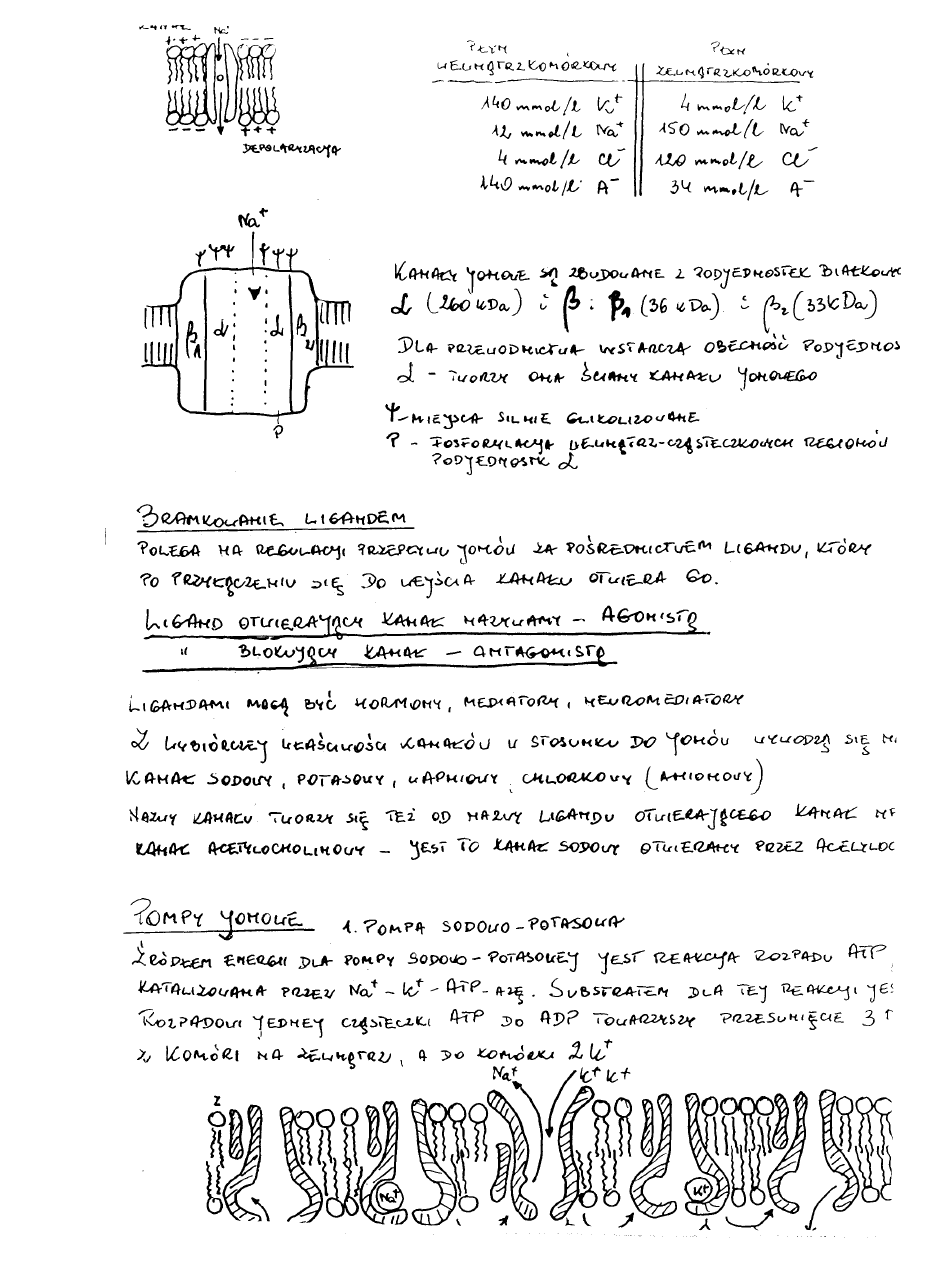 Na⁺
+ + + – – –
– – – + + +
DEPOLARYZACJA
PŁYN WEWNĄTRZKOMÓRKOWY
PŁYN ZEWNĄTRZKOMÓRKOWY
140 mmol/l K⁺ 4 mmol/l K⁺
12 mmol/l Na⁺ 150 mmol/l Na⁺
4 mmol/l Cl⁻ 120 mmol/l Cl⁻
140 mmol/l A⁻ 34 mmol/l A⁻
Na⁺
Ψ Ψ Ψ Ψ Ψ Ψ
β₁ α α β₂
P
KANAŁY JONOWE SĄ ZBUDOWANE Z PODJEDNOSTEK BIAŁKOW
α (260 kDa) i β : β₁ (36 kDa) i β₂ (33 kDa)
DLA PRZEWODNICTWA WSTARCZA OBECNOŚĆ PODJEDNOS
α - TWORZY ONA ŚCIANY KANAŁU JONOWEGO
Ψ - MIEJSCA SILNIE GLIKOLIZOWANE
P - FOSFORYLACJA WEWNĄTRZ-CZĄSTECZKOWYCH REGIONÓW
PODJEDNOSTK α
BRAMKOWANIE LIGANDEM
POLEGA NA REGULACJI PRZEPŁYWU JONÓW ZA POŚREDNICTWEM LIGANDU, KTÓRY
PO PRZYŁĄCZENIU SIĘ DO WEJŚCIA KANAŁU OTWIERA GO.
LIGAND OTWIERAJĄCY KANAŁ NAZYWAMY – AGONISTĄ
" BLOKUJĄCY KANAŁ – ANTAGONISTĄ
LIGANDAMI MOGĄ BYĆ HORMONY, MEDIATORY, NEUROMEDIATORY
Z WYBIÓRCZEJ WŁAŚCIWOŚCI KANAŁÓW W STOSUNKU DO JONÓW WYWODZĄ SIĘ
KANAŁ SODOWY, POTASOWY, WAPNIOWY, CHLORKOWY (ANIONOWY)
NAZWY KANAŁU TWORZY SIĘ TEŻ OD NAZWY LIGANDU OTWIERAJĄCEGO KANAŁ
KANAŁ ACETYLOCHOLINOWY – JEST TO KANAŁ SODOWY OTWIERANY PRZEZ ACELYLOC
POMPY JONOWE 1. POMPA SODOWO-POTASOWA
ŹRÓDŁEM ENERGII DLA POMPY SODOWO-POTASOWEJ JEST REAKCJA ROZPADU ATP
KATALIZOWANA PRZEZ Na⁺-K⁺-ATP-AZĘ. SUBSTRATEM DLA TEJ REAKCJI JES
ROZPADOWI JEDNEJ CZĄSTECZKI ATP DO ADP TOWARZYSZY PRZESUNIĘCIE 3
Z KOMÓRI NA ZEWNĄTRZ, A DO KOMÓRKI 2 K⁺
Na⁺ K⁺ K⁺
Z
Na⁺ K⁺